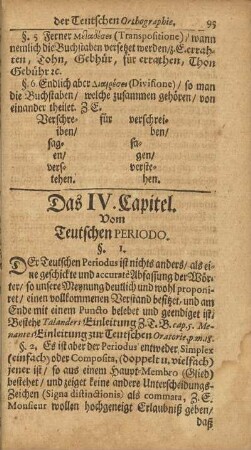 der Teutschen Orthographie. 95
§. 5 Ferner Μετάθεσις (Transpositione) / wann
nemlich die Buchstaben versetzet werden / z. E. errah-
ten, Lohn, Gebhür, für errathen, Thon
Gebühr ꝛc.
§. 6. Endlich aber Διαιρέσει (Divisione) / so man
die Buchstaben / welche zusammen gehören / von
einander theilet. Z E.
Verschre- für verschrei-
iben/ ben/
sag- sa-
en/ gen/
vers- verste-
tehen. hen.
Das IV. Capitel.
Vom
Teutschen PERIODO.
§. 1.
DEr Teutschen Periodus ist nichts anders / als ei-
ne geschickte und accurate Abfassung der Wör-
ter / so unsere Meynung deutlich und wohl proponi-
ret / einen vollkommenen Verstand besitzet, und am
Ende mit einem Puncto belebet und geendiget ist /
Besiehe Talanders Einleitung Z. T. B. cap. 5. Me-
nantes Einleitung zur Teutschen Oratorie. p. m. 18.
§. 2. Es ist aber der Periodus entweder Simplex
(einfach) oder Composita, (doppelt u. vielfach)
jener ist / so aus einem Haupt-Membro (Glied)
bestehet / und zeiget keine andere Unterscheidungs-
Zeichen (Signa distinctionis) als commata, Z. E.
Monsieur wollen hochgeneigt Erlaubniß geben /
daß